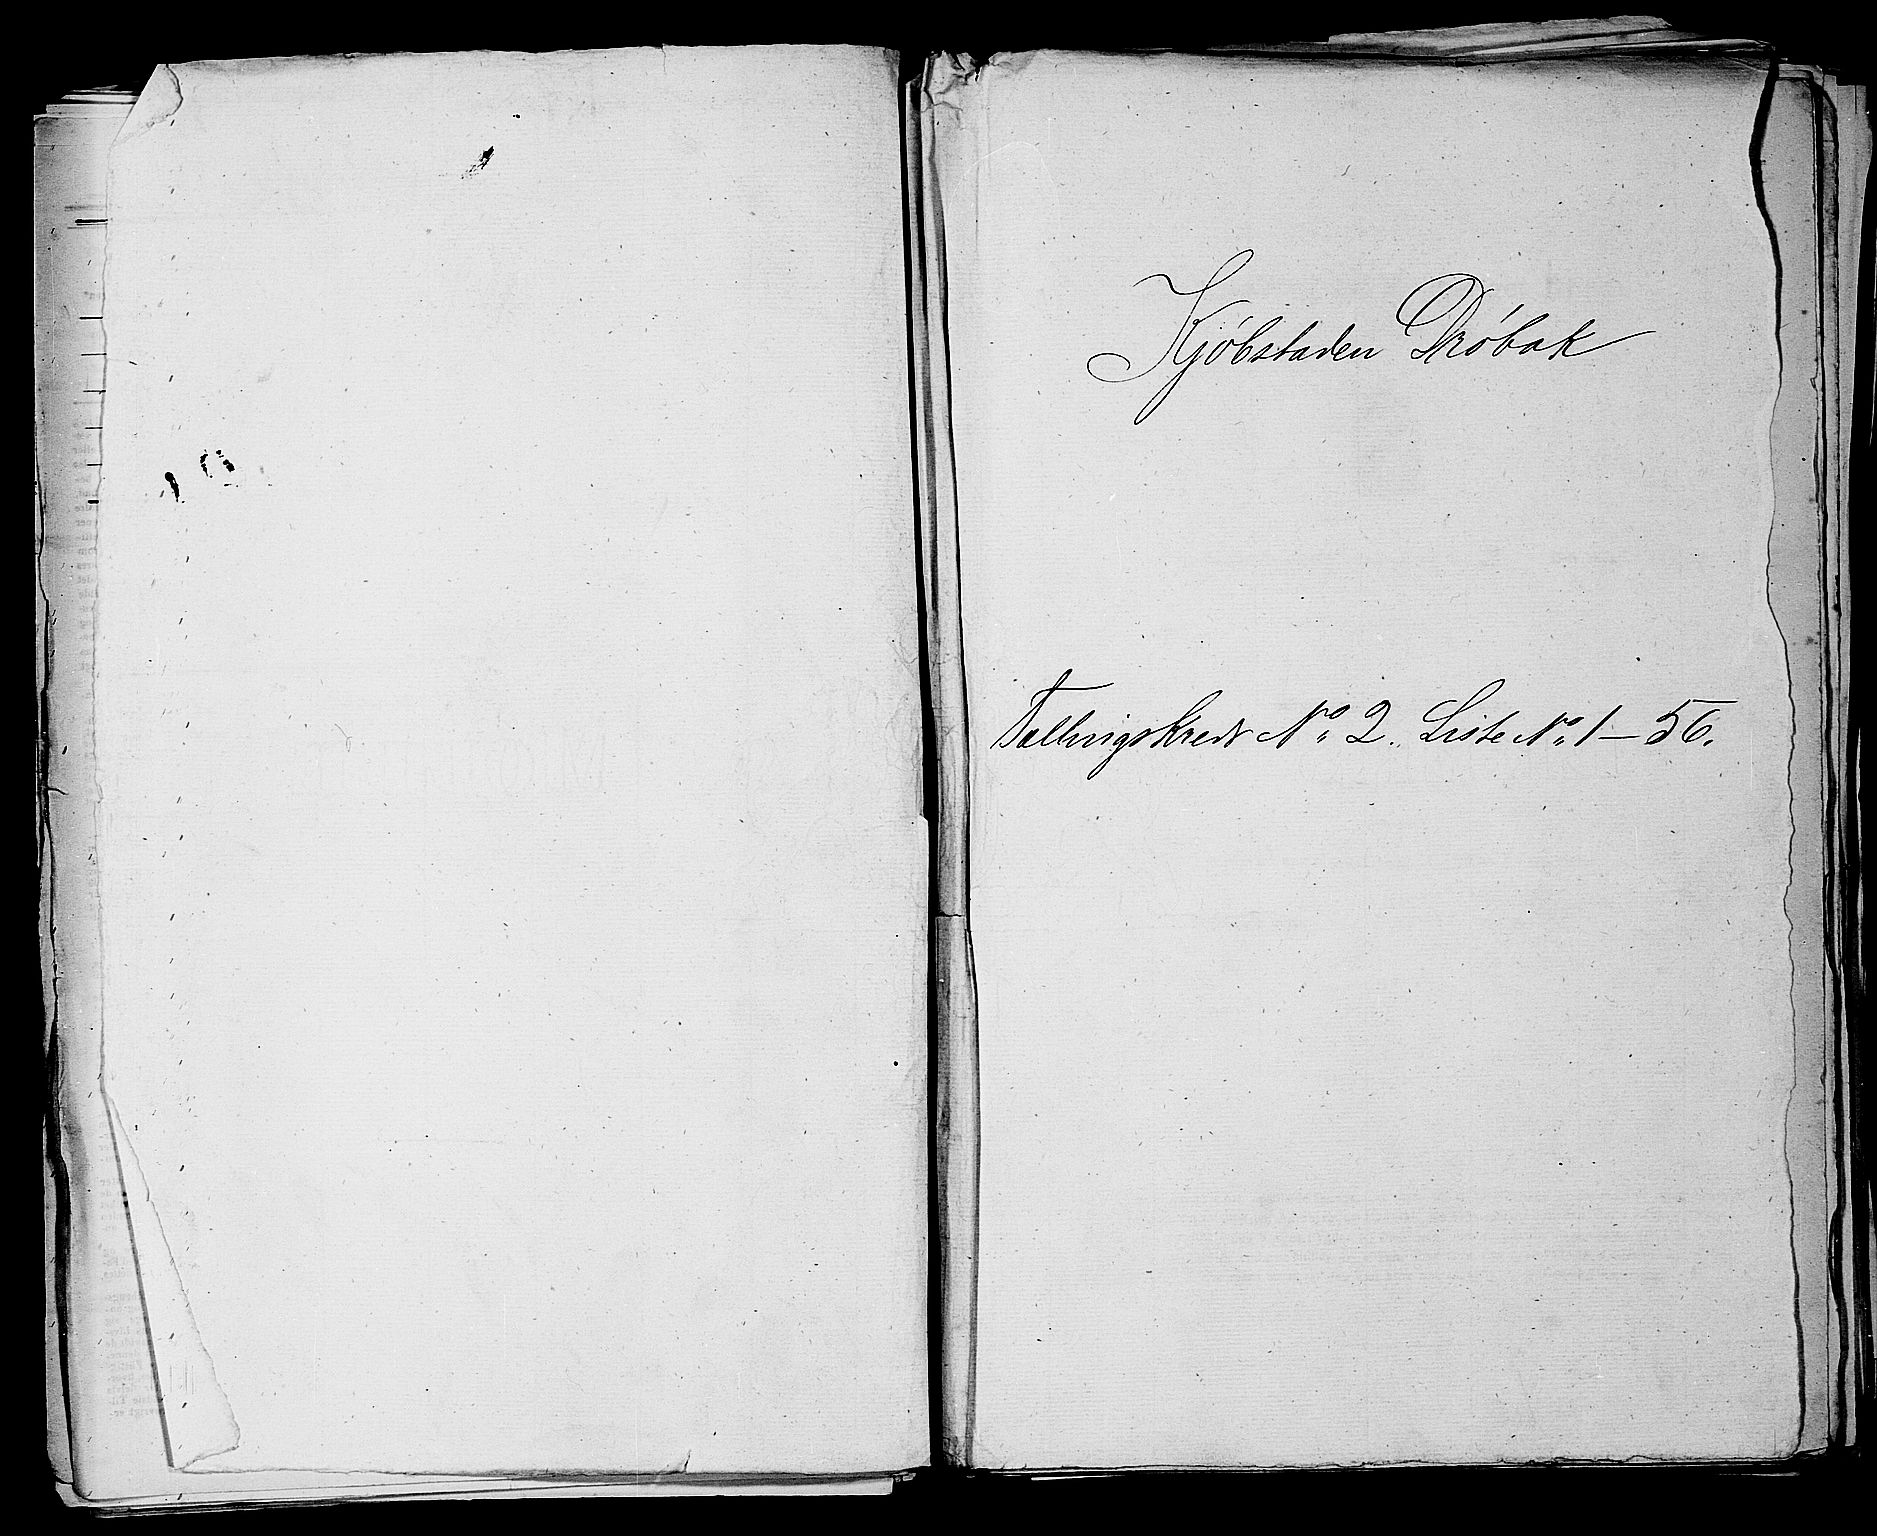 Kjøbstaden Drøbak
Tællingskreds No 2. Liste No 1 – 56.